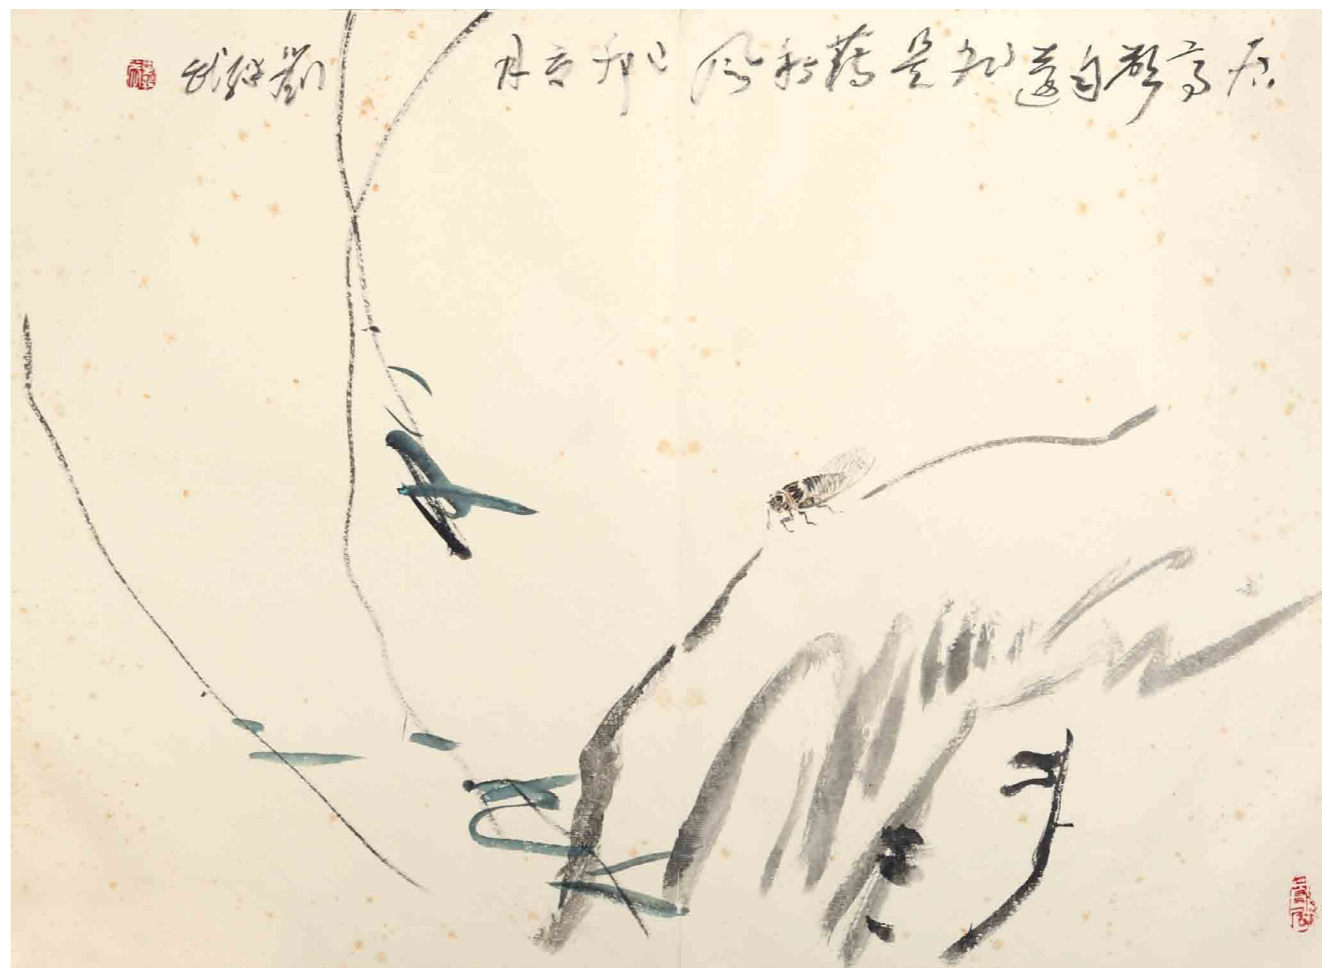 居高聲自遠非是藉秋風 己卯 月 劉繼武